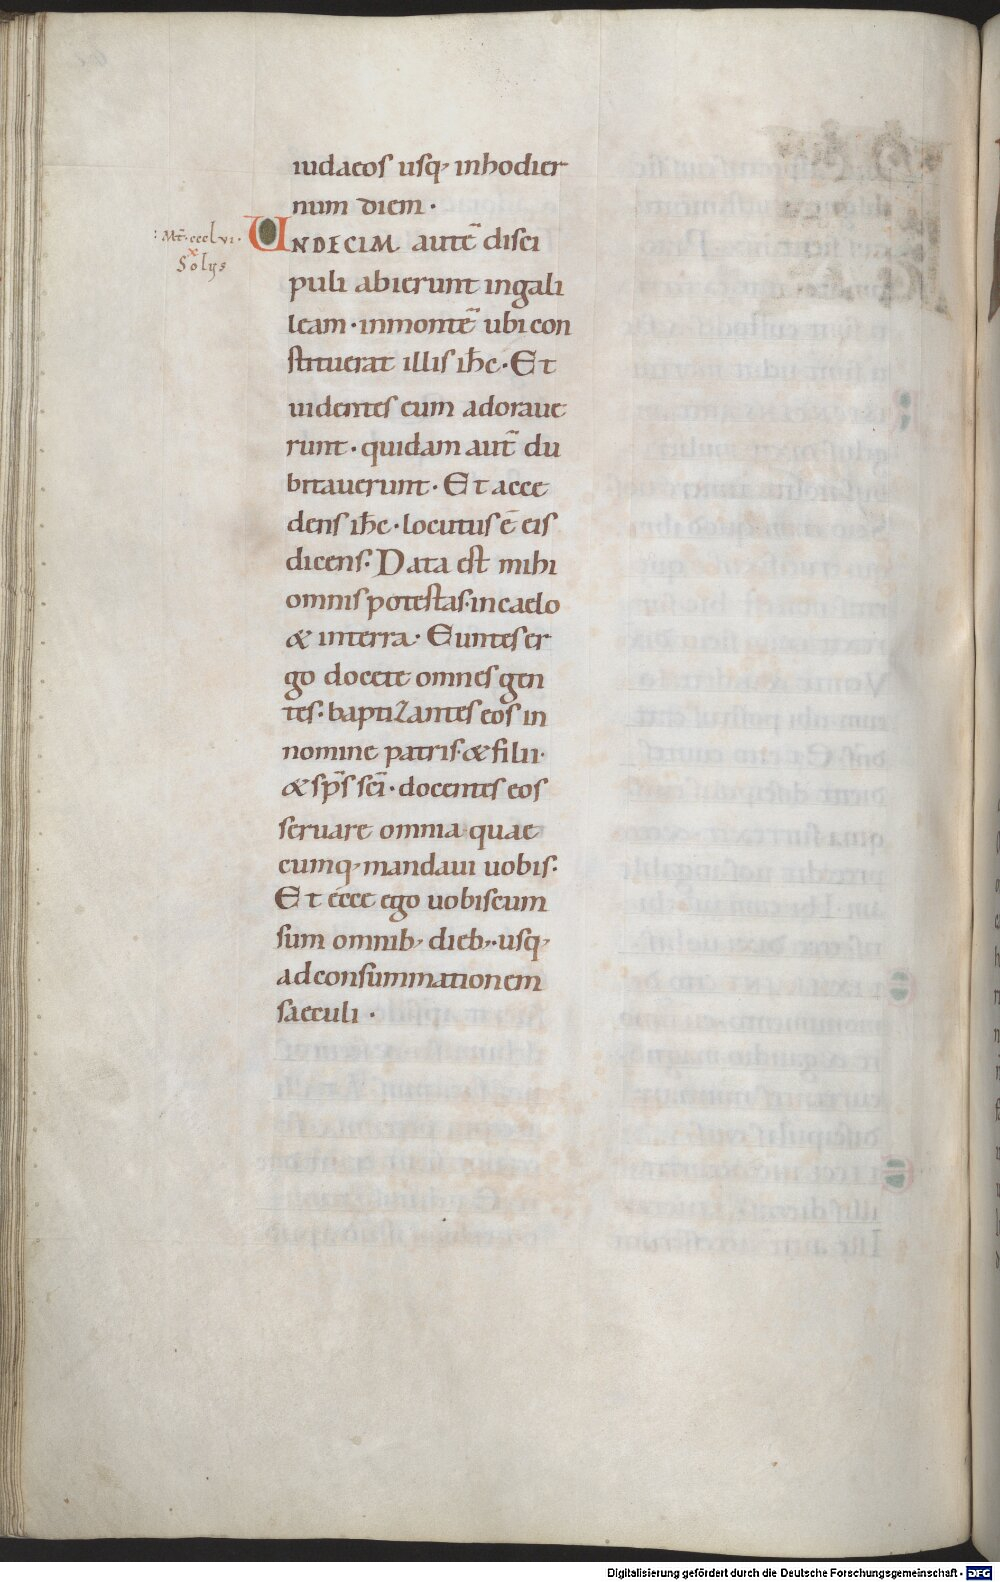 iudaeos usq; inhodier
num diem ·
: Mt̄ · ccclvi ·
x
Solus
UNDECIM autē disci
puli abierunt ingali
leam · inmontē ubi con
stituerat illis ih̅c · Et
uidentes eum adoraue
runt · quidam aut̄ du
bitauerunt · Et acce
dens ih̅c · locutus ē eis
dicens · Data est mihi
omnis potestas · incaelo
& interra · Euntes er
go docete omnes gen
tes · baptizantes eos in
nomine patris · & filii ·
& sp̄s sc̄i · docentes eos
seruare omnia · quae
cumq; mandaui uobis ·
Et ecce ego uobiscum
sum omnib; dieb; · usq;
adconsummationem
saeculi ·
Digitalisierung gefördert durch die Deutsche Forschungsgemeinschaft - DFG